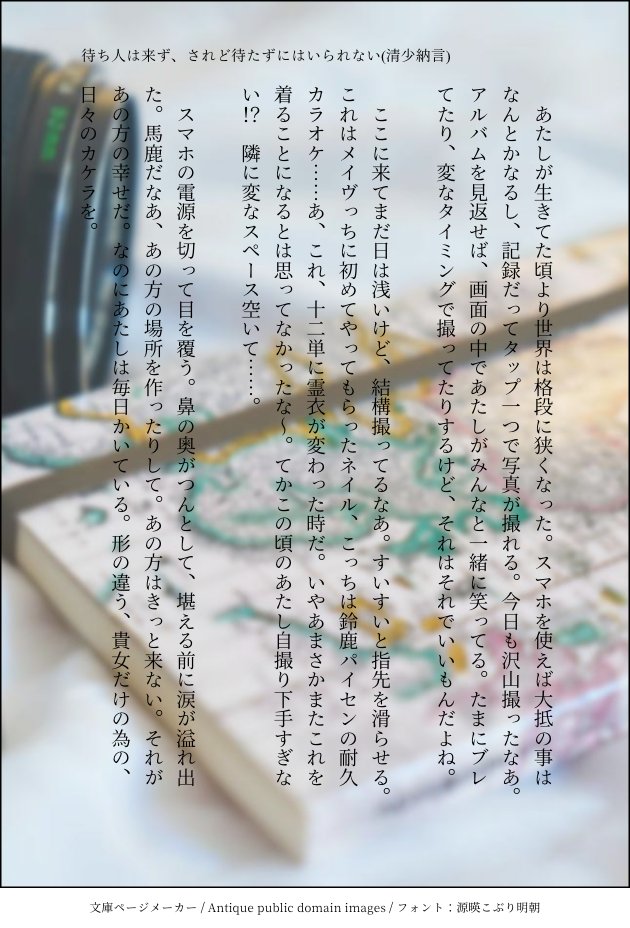 待ち人は来ず、されど待たずにはいられない(清少納言)
あたしが生きてた頃より世界は格段に狭くなった。スマホを使えば大抵の事は
なんとかなるし、記録だってタップ一つで写真が撮れる。今日も沢山撮ったなあ。
アルバムを見返せば、画面の中であたしがみんなと一緒に笑ってる。たまにブレ
てたり、変なタイミングで撮ってたりするけど、それはそれでいいもんだよね。
ここに来てまだ日は浅いけど、結構撮ってるなあ。すいすいと指先を滑らせる。
これはメイヴっちに初めてやってもらったネイル、こっちは鈴鹿パイセンの耐久
カラオケ……あ、これ、十二単に霊衣が変わった時だ。いやあまさかまたこれを
着ることになるとは思ってなかったな〜。てかこの頃のあたし自撮り下手すぎな
い!?　隣に変なスペース空いて……。
スマホの電源を切って目を覆う。鼻の奥がつんとして、堪える前に涙が溢れ出
た。馬鹿だなあ、あの方の場所を作ったりして。あの方はきっと来ない。それが
あの方の幸せだ。なのにあたしは毎日かいている。形の違う、貴女だけの為の、
日々のカケラを。
文庫ページメーカー / Antique public domain images / フォント：源暎こぶり明朝